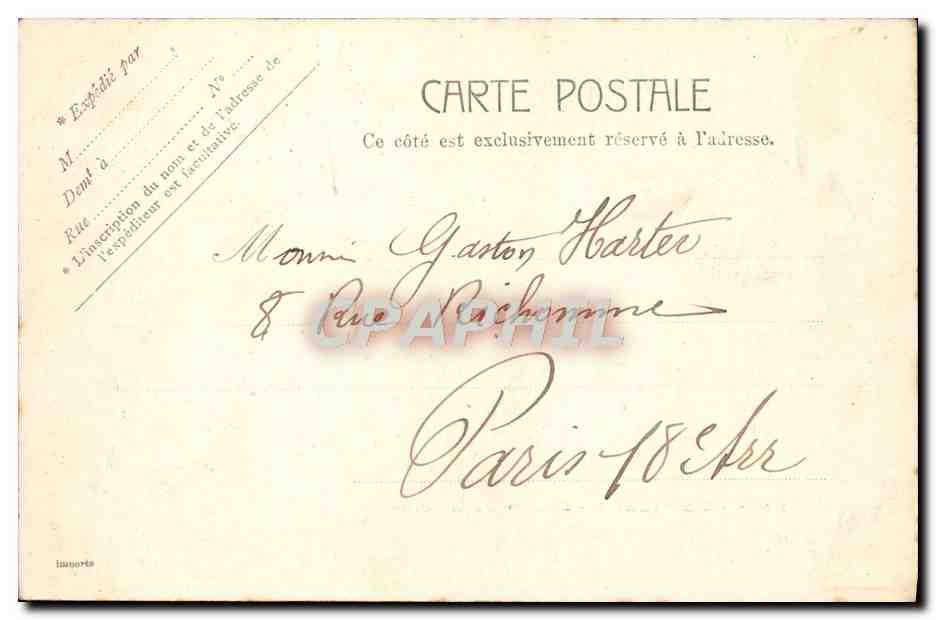 * Expédié par
M
Demt à
Rue Nº
* L'inscription du nom et de l'adresse de
l'expéditeur est facultative.
CARTE POSTALE
Ce côté est exclusivement réservé à l'adresse.
Gaston Harter
8 Rue Richomme
CPAPHIL
Paris 18e Arr
importé